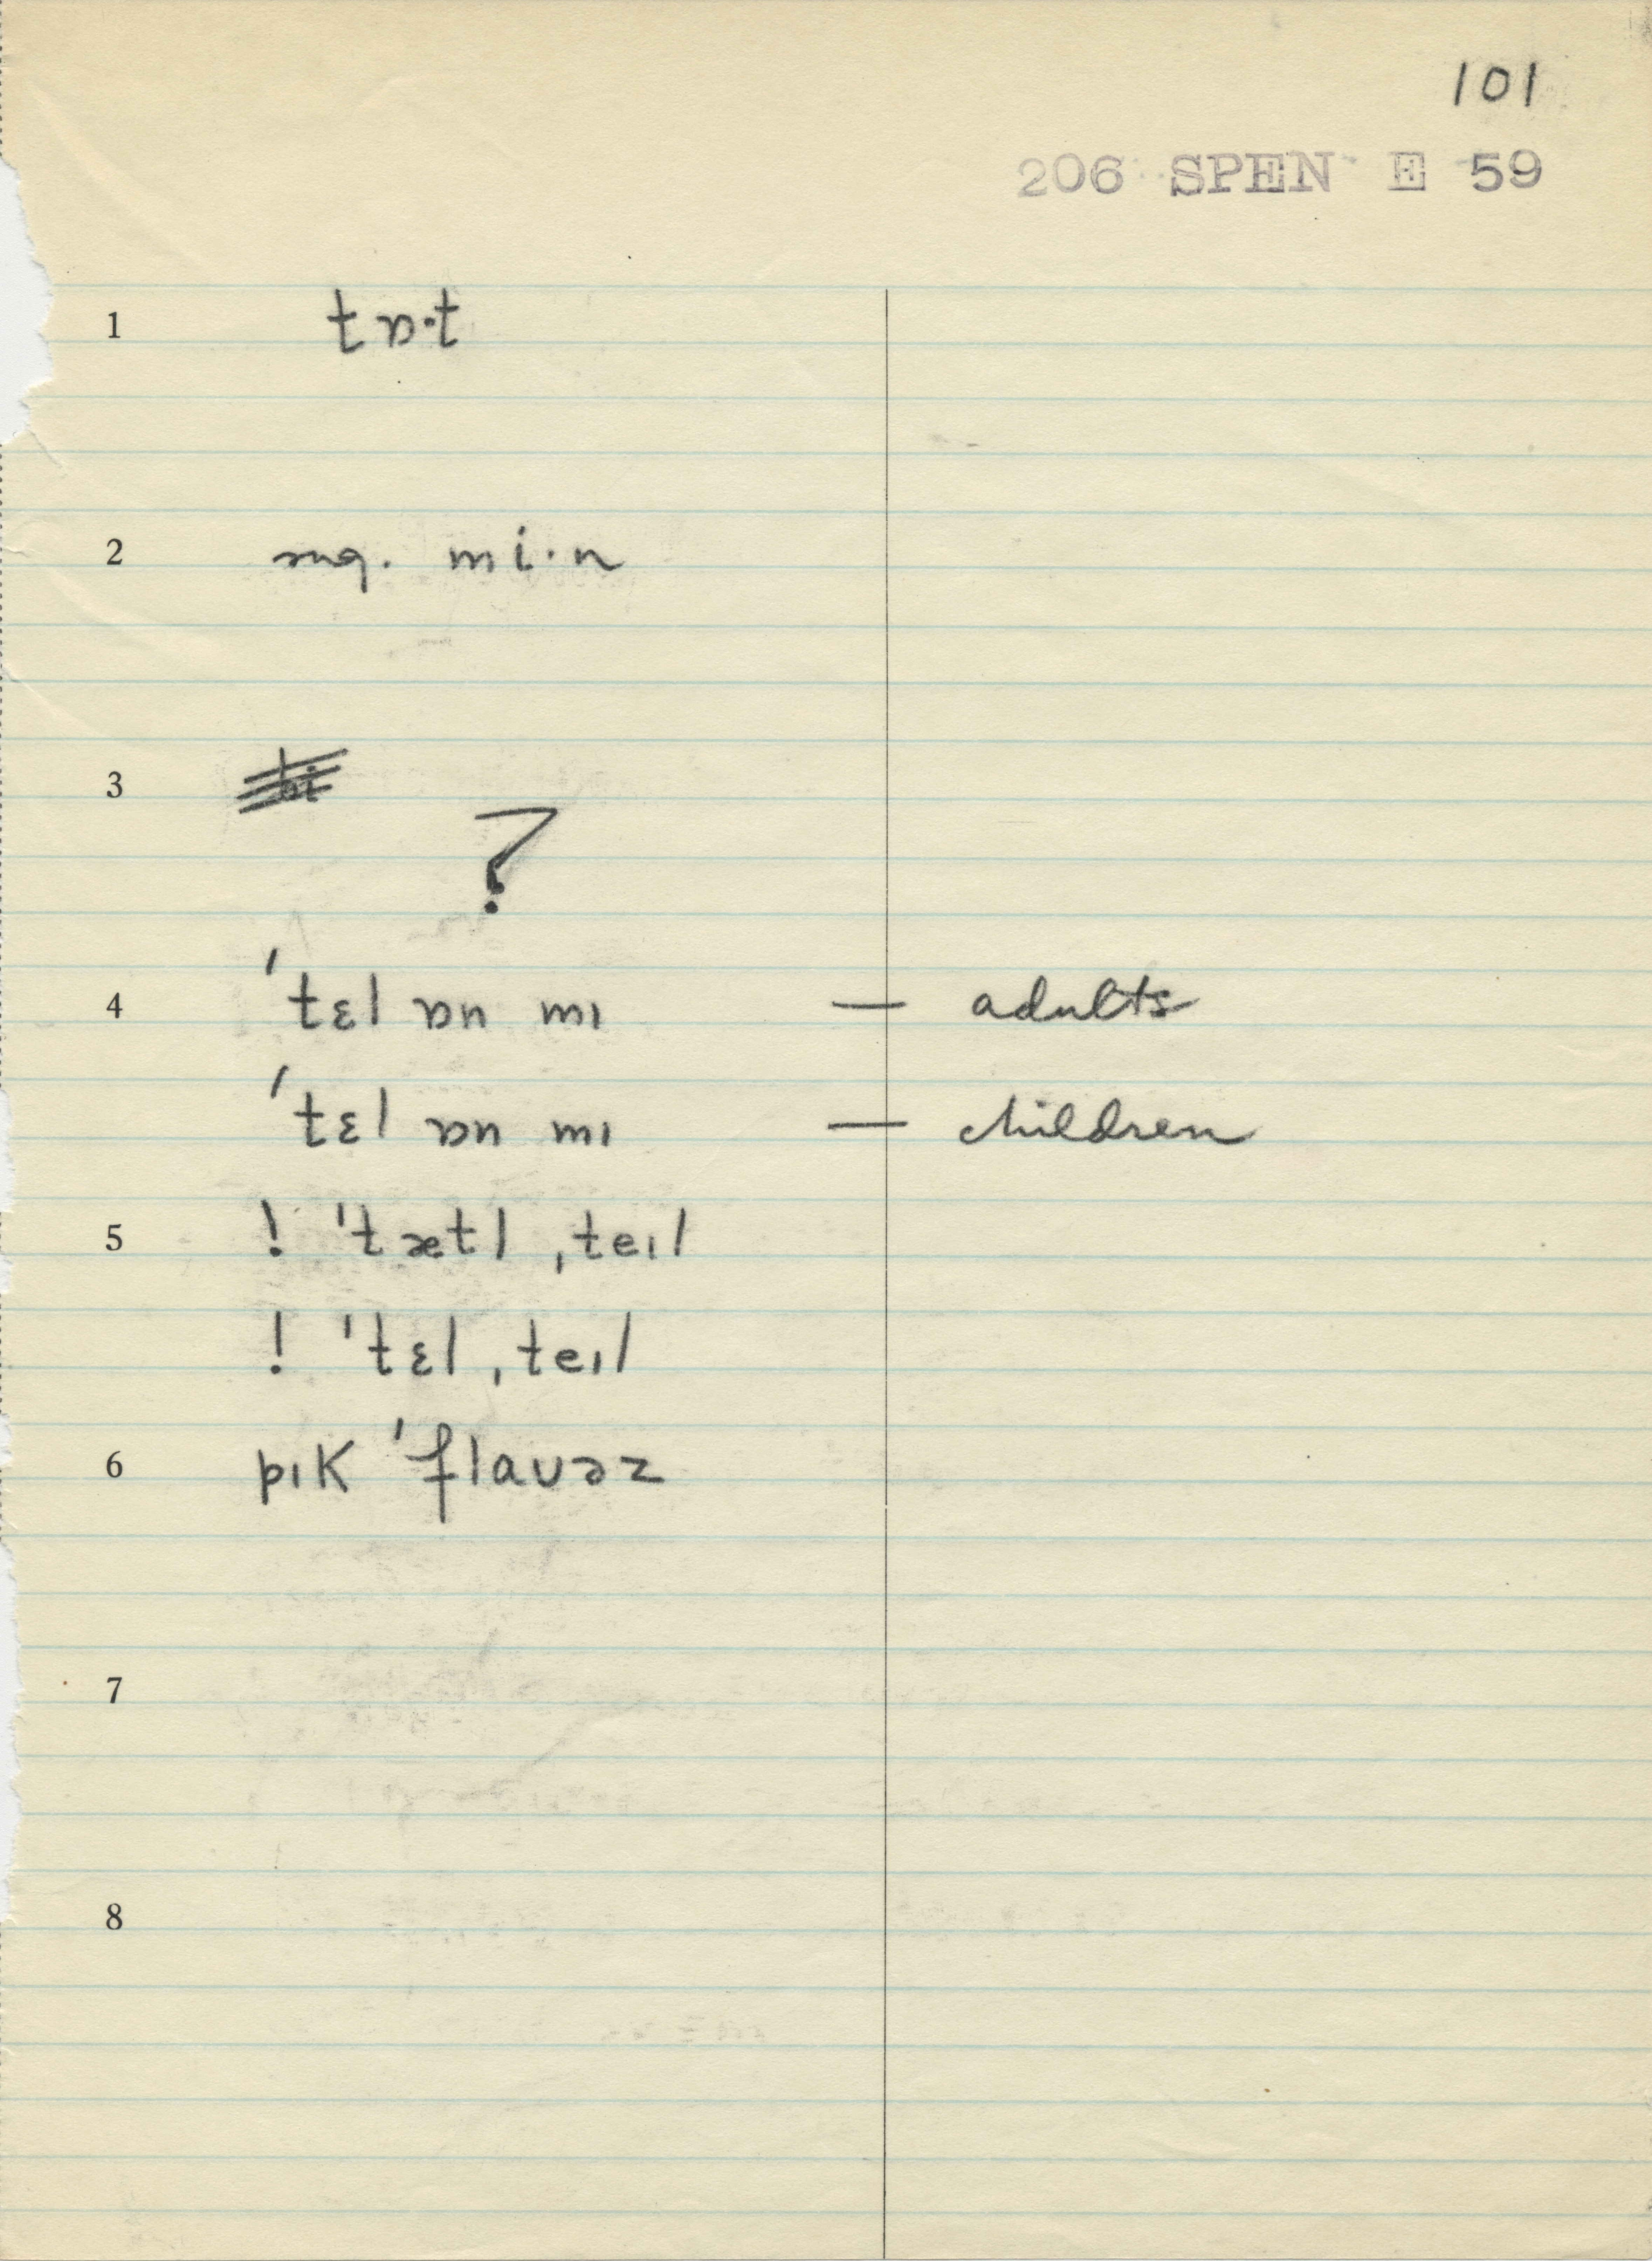 101
206 SPEN E 59
1 tɒ·t
2 sug. mi·n
3 ?
4 ˈtɛl ɒn mɪ — adults
ˈtɛl ɒn mɪ — children
5 ! ˈtætl ˌteɪl
! ˈtɛl ˌteɪl
6 pɪk ˈflaʊəz
7
8